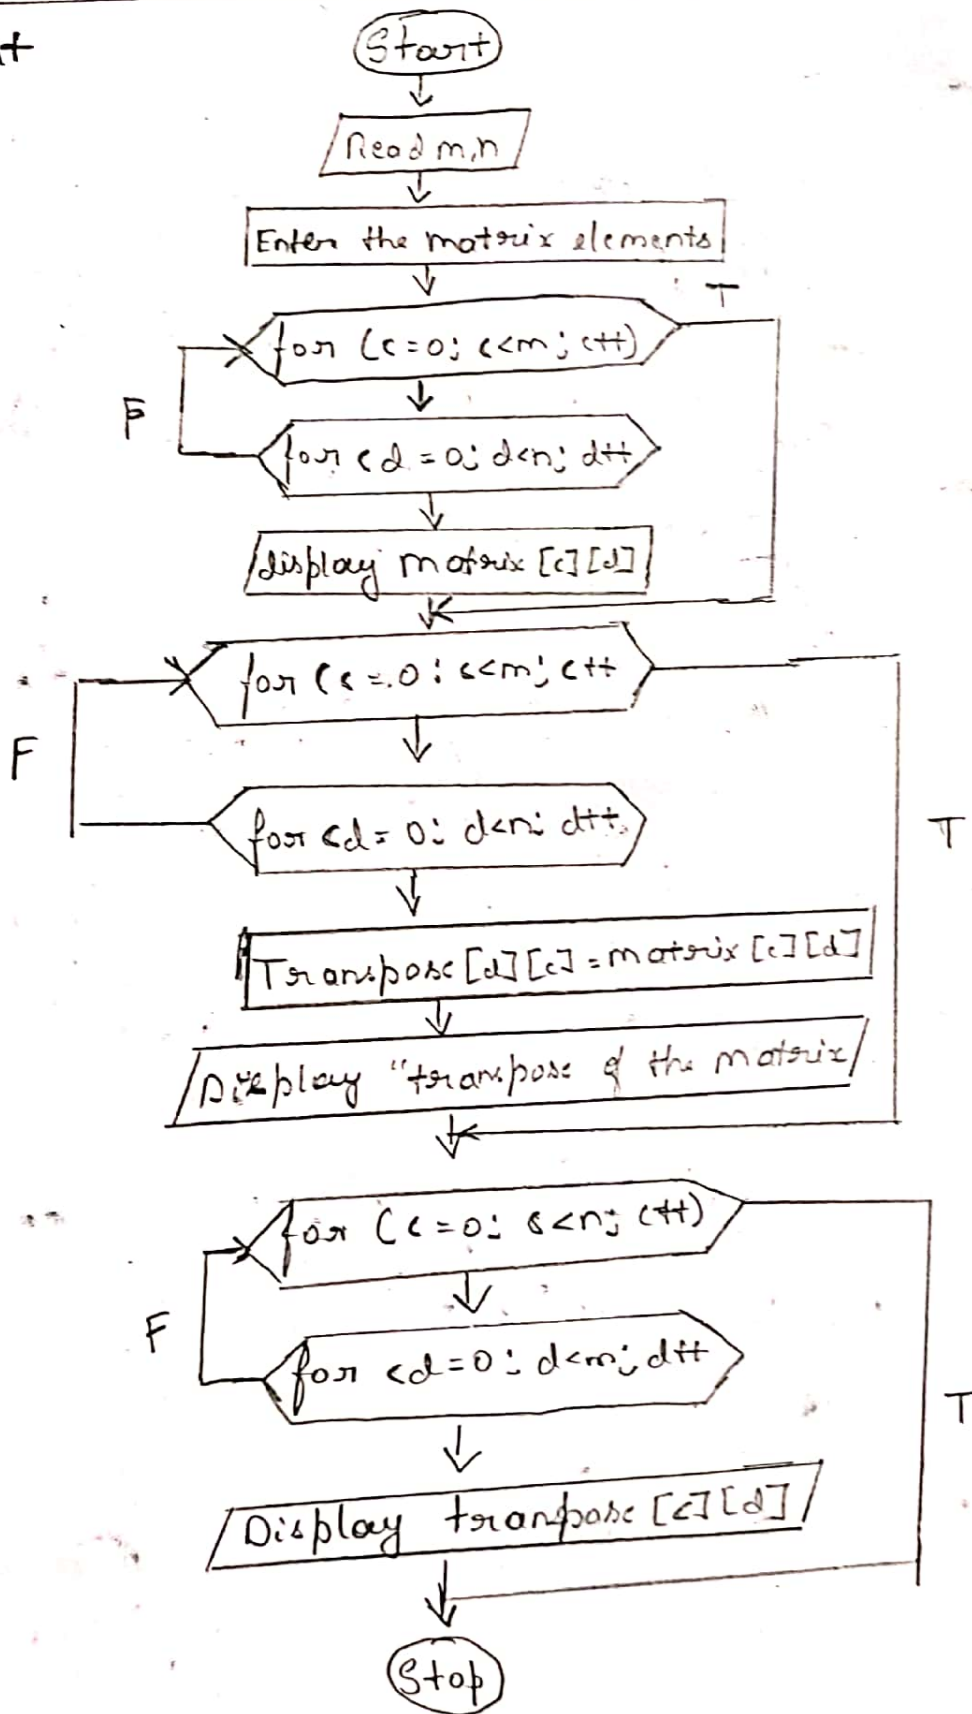 Start
Read m,n
Enter the matrix elements
T
for (c=0; c<m; c++)
F
for <d=0; d<n; d++
display matrix [c][d]
for (c=0; c<m; c++
F
for <d=0; d<n; d++
T
Transpose [d][c] = matrix [c][d]
Display "transpose of the matrix
for (c=0; c<n; c++)
F
for <d=0; d<m; d++
T
Display tranpose [c][d]
Stop